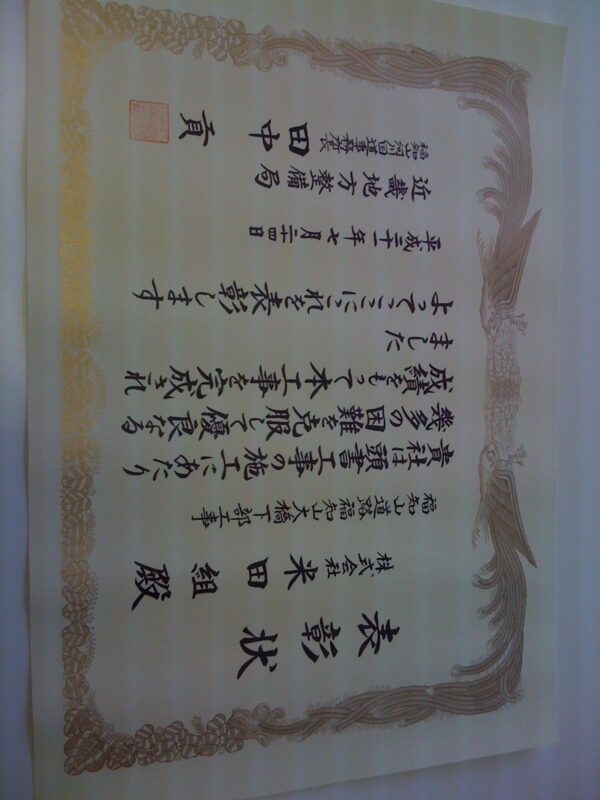 表彰状
株式会社 米田組 殿
福知山道路福知山大橋下部工事
貴社は頭書工事の施工にあたり
幾多の困難を克服して優良なる
成績をもって本工事を完成され
ました
よってここにこれを表彰します
平成二十一年七月二十四日
近畿地方整備局
福知山河川国道事務所長
田中 貢